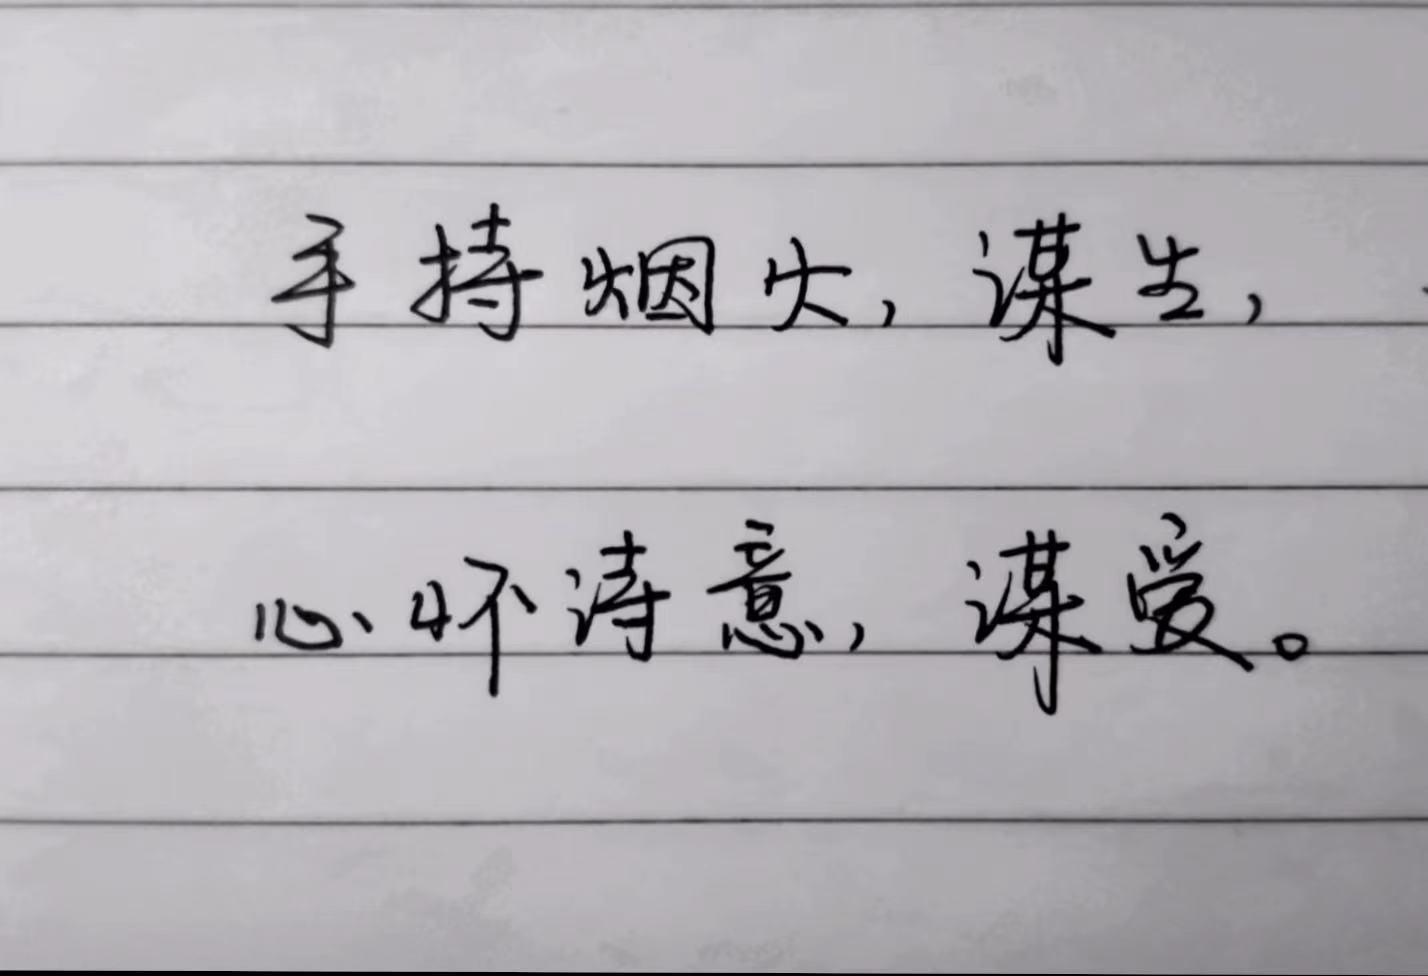 手持烟火,谋生,
心怀诗意,谋爱。